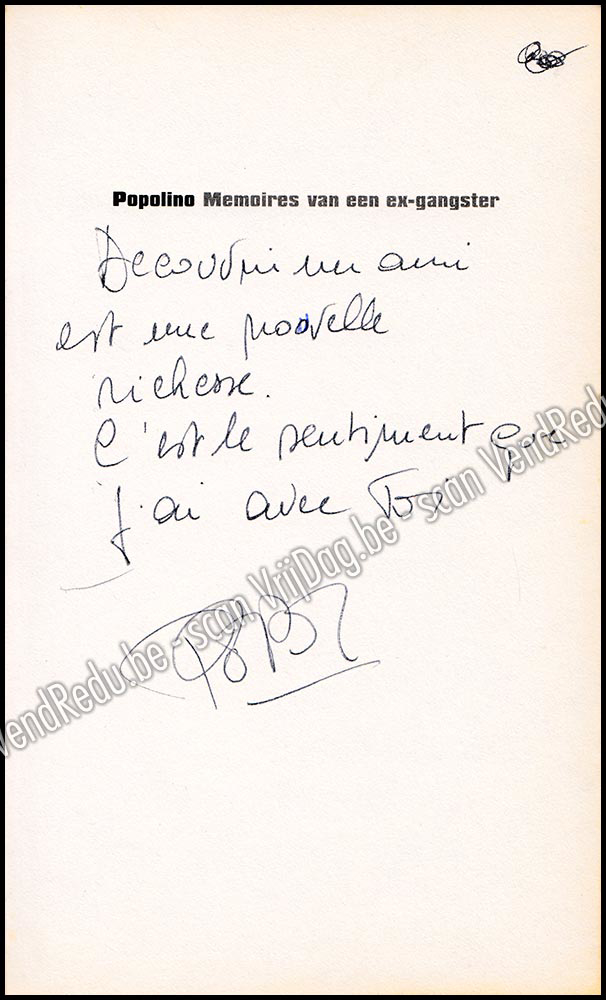 Popolino Memoires van een ex-gangster
Decouvrir un ami
est une nouvelle
richesse.
C'est le sentiment que
j'ai avec Toi
VendRedu.be - scan VrijDag.be - scan VendRedu